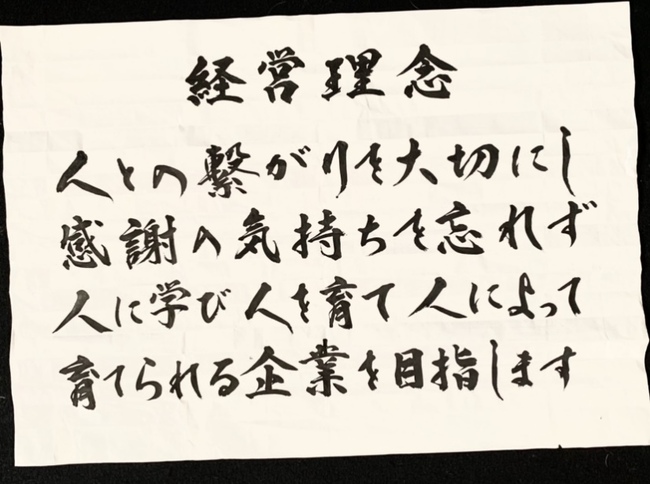 経営理念
人との繋がりを大切にし
感謝の気持ちを忘れず
人に学び人を育て人によって
育てられる企業を目指します